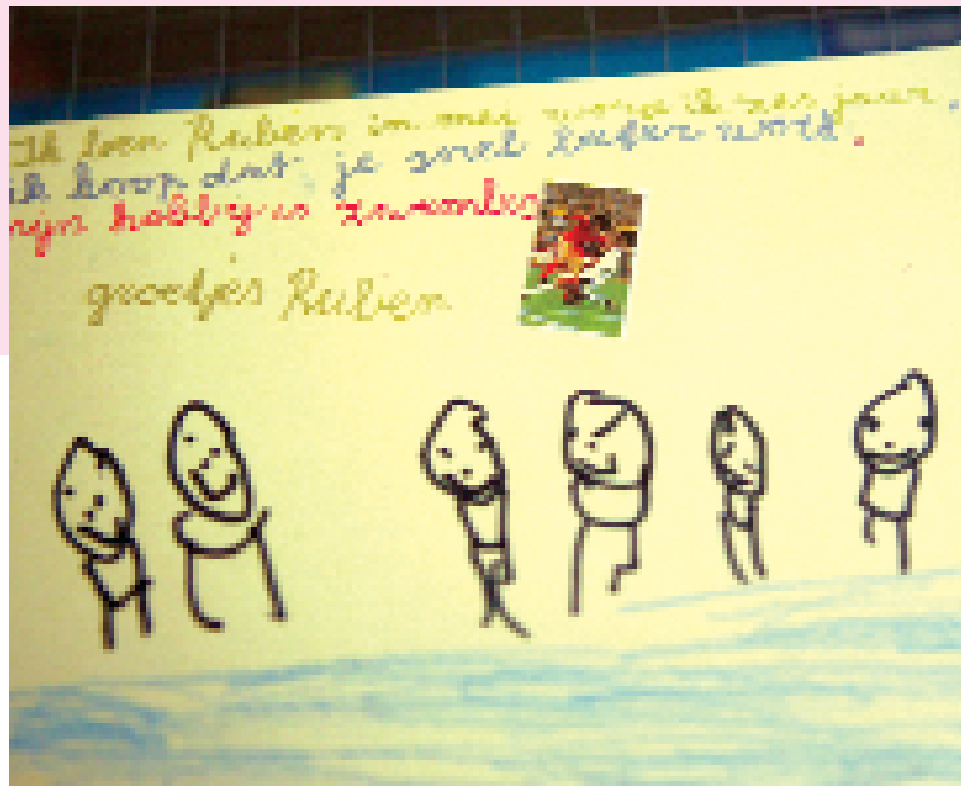 Ik ben Ruben in mei word ik zes jaar.
ik hoop dat je snel beter wordt.
mijn hobby is zwemles
groetjes Ruben